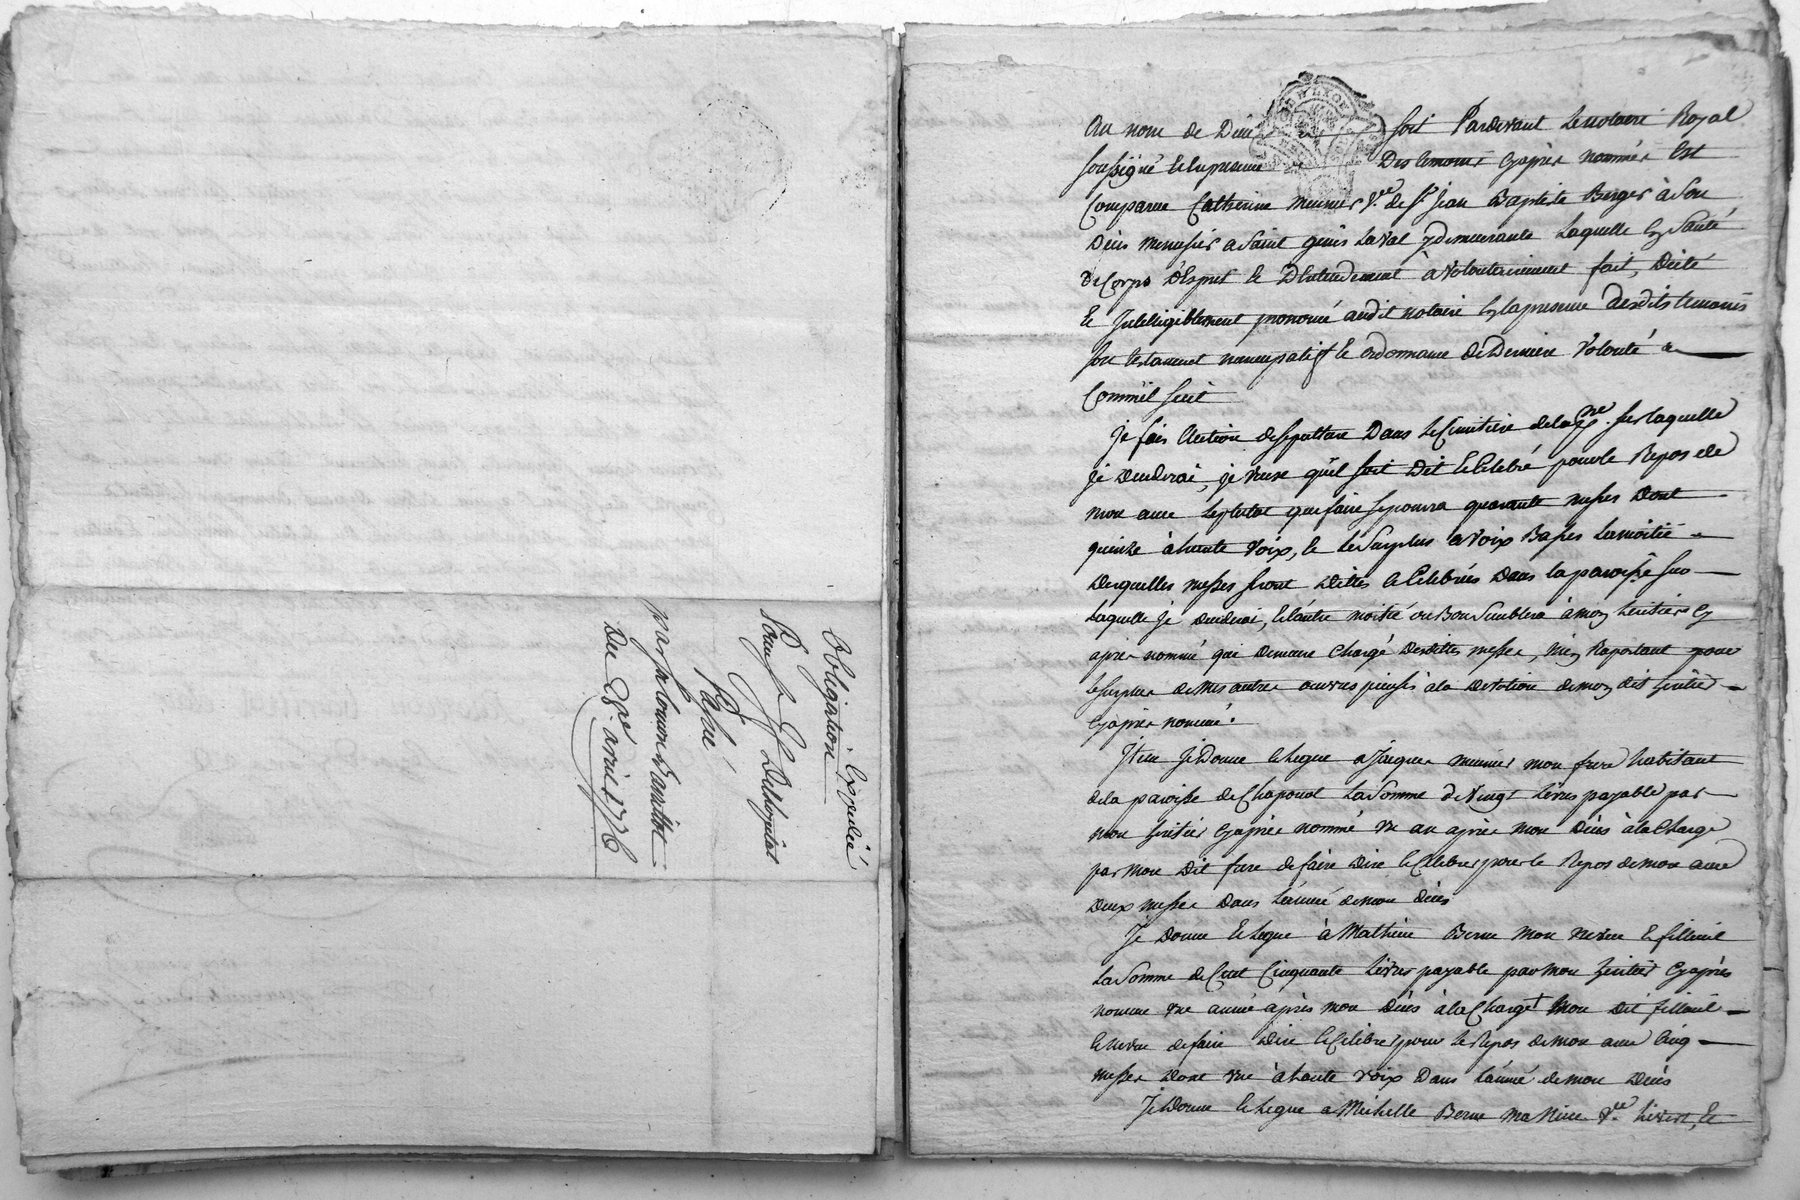 Obligation Expediée
Pour Sr J. Delhopital
Pr.
Passac,
Mas Jn Louis
Du 28e. avril 1776
Au nom de Dieu soit Pardevant Le notaire Royal
soussigné et en presence Des temoins cyaprès nommés Est
Comparue Catherine meunier Ve. de Sr. jean Baptiste Berger à Son
Décès menusier a Saint genis Laval y demeurante Laquelle En Santé
de Corps D'Esprit et D'entendement à volontairement fait, Dicté
et Intelligiblement prononcé audit notaire En la presence desdits temoins
Son testament nuncupatif et ordonnance de Derniere Volonté
Comm'il suit
Je fais élection de sepulture Dans Le Cimetiere de la psse. sur laquelle
je decederai, je veux qu'il soit Dit et Celebré pour le Repos de
mon ame Le plutot que faire se pourra quarante messes Dont
quinze à haute voix, et le Surplus a voix Basses La moitié
desquelles messes seront Dittes et Celebrées Dans la paroisse sur
Laquelle je decederai, et l'autre moitié ou Bon Semblera à mon heritier cy
aprés nommé qui Demeure Chargé Desdittes messes, m'en Raportant pour
le surplus de mes autres oeuvres pieuses à la Devotion de mon dit heritier
cyaprès nommé.
Item je Donne et Legue a Jacques meunier mon frere habitant
de la paroisse de Chaponost La Somme de vingt Livres payable par
mon heritier cyaprès nommé un an après mon Décès à la Charge
par mon Dit frere de faire Dire et Celebrer pour le Repos de mon ame
Deux messes Dans L'année de mon Décès
Je Donne et Legue à Mathieu Berne mon neveu et filleul
La Somme de Cent Cinquante Livres payable par mon heritier Cyaprès
nommé une année après mon Décès à la Charge + Mon Dit filleul
et neveu de faire Dire et Celebrer pour le Repos de mon ame Cinq
messes Dont une à haute voix Dans l'année de mon Décès
Je Donne et Legue a Michelle Berne ma Niece Ve. et